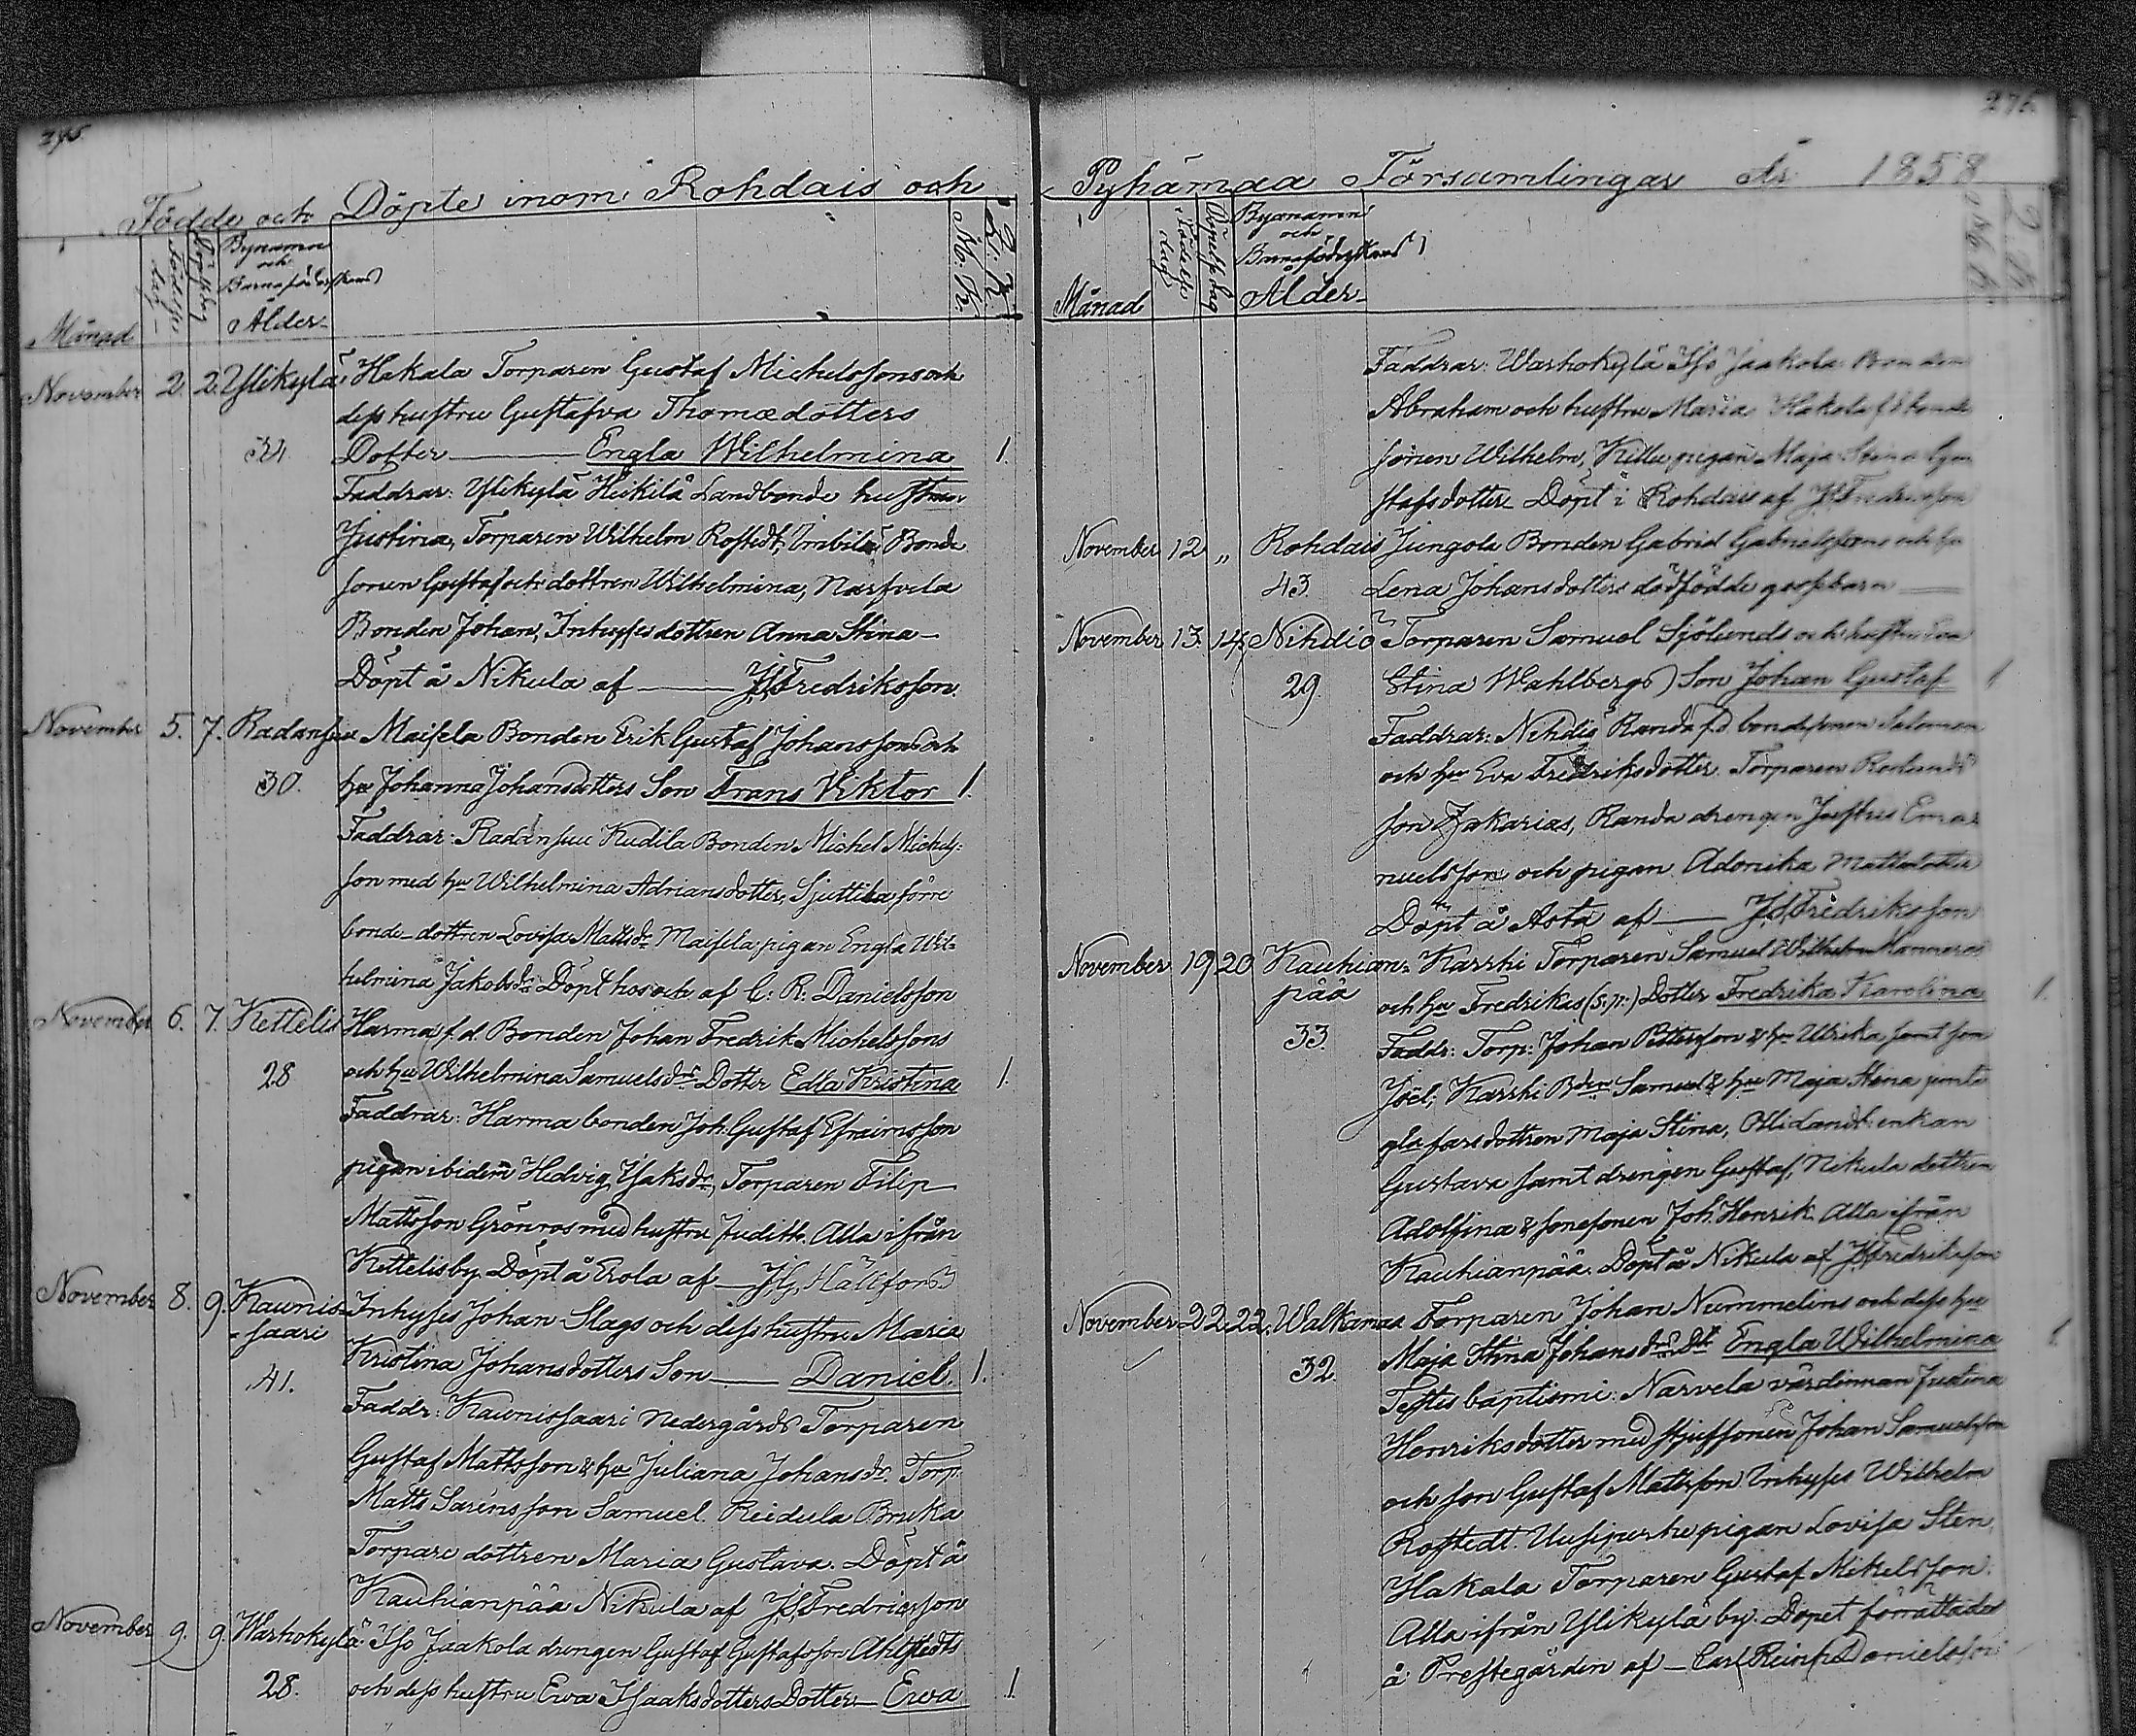 Födde och Döpte inom Rohdais och
Månad
Födelse dag
Döpelse dag
Bynamn
och
Barnaföderskans
Ålder
M. K.
Q. K.
November 2. 2. Ylikylä Hakala Torparen Gustaf Michelssons och
dess hustru Gustafva Thomædotters
34 Dotter Engla Wilhelmina 1.
Faddrar: Ylikylä Heikilä Landbonde hustrun
Justina, Torparen Wilhelm Rostedt, Bonde
sonen Gustaf och dottren Wilhelmina, Narfvela
Bonden Johan, Inhyses dottren Anna Stina
Döpt å Nikula af J. Fredriksson
November 5. 7. Radansuu Maisela Bonden Erik Gustaf Johanssons och
30. hu Johanna Johansdotters Son Frans Viktor 1.
Faddrar: Radansuu Kudila Bonden Michel Michels-
son med hu Wilhelmina Adriansdotter, förre
bonde-dottren Lovisa Mattsdr Maisela pigan Engla Wil-
helmina Jakobsdr Döpt hos och af C. R. Danielsson
November 6. 7. Kettelis Harma f.d. Bonden Johan Fredrik Michelssons
28 och hu Wilhelmina Samuelsdrs Dotter Edla Kristina 1.
Faddrar: Harma bonden Joh: Gustaf Efraimsson
pigan ibidem Hedvig Isaksdr, Torparen Filip
Mattsson Grönroos med hustru Judith. Alla ifrån
Kettelisby. Döpt å Erola af J. G. Hällfors
November 8. 9. Kaunis- Inhyses Johan Slags och dess hustru Maria
saari
41. Kristina Johansdotters Son Daniel. 1.
Faddr: Kaunissaari Nedergårds Torparen
Gustaf Mattsson & hu Juliana Johansdr. Torp.
Matts Sarénsson Samuel. Reidula Bruka
Torpare dottren Maria Gustava. Döpt å
Kauhianpää Nikula af J. Fredricsson
November 9. 9. Warhokylä Iso Jaakola drengen Gustaf Gustafsson Ahlstedts
28. och dess hustru Ewa Isaaksdotters Dotter Ewa 1
276
Pyhämaa Församlingar År 1858
Månad
Födelse dag
Döpelse dag
Bynamn
och
Barnaföderskans
Ålder
Faddrar: Warhokylä Iso Jaakola Bonden
Abraham och hustru Maria Hakola f.d bonde
sonen Wilhelm, pigan Maja Stina Gu-
stafsdotter Döpt i Rohdais af J. Fredricsson
November 12 „ Rohdais Jungola Bonden Gabriel Gabrielssons och hu
43. Lena Johansdotters dödfödde gossebarn
November 13. 14. Nihdiö Torparen Samuel Sjölunds och hustru Eva
29. Stina Wahlbergs Son Johan Gustaf 1
Faddrar: Nihdiö Randa f.d. bondesonen Salomon
och hu Eva Fredriksdotter. Torparen
son Zakarias, Randa drengen Justus Ema-
nuelsson och pigan Adonika Mattsdotter
Döpt å Asta af J. Fredriksson
November 19 20 Kauhian- Karrhi Torparen Samuel Wilhelm Manneros
pää
och hu Fredrikas Dotter Fredrika Karolina 1.
33. Faddr: Torp: Johan Pettersson & hu Ulrika samt son
Joel; Karrhi Bden Samuel & hu Maja Stina jemte
dottren Maja Stina, enkan
Gustava samt drengen Gustaf, Nikula dottren
Adolfina & sonesonen Joh: Henrik Alla ifrån
Kauhianpää. Döpt å Nikula af J. Fredriksson
November 22. 22. Walkamaa Torparen Johan Nummelins och dess hu
32. Maja Stina Johansdrs Dr Engla Wilhelmina 1
Testes baptismi: Narvela värdinnan Justina
Henriksdotter med stjufsonen Johan Samuelsson
och son Gustaf Mattsson Inhyses Wilhelm
Rostedt. pigan Lovisa Sten,
Hakala Torparen Gustaf Mikelsson.
Alla ifrån Ylikylä by. Dopet förrättades
å Prestegården af Carl Reinh. Danielsson